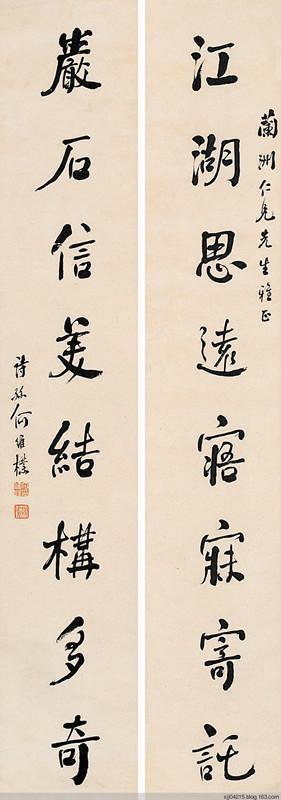 蘭洲仁兄先生雅正
江湖思遠寤寐寄託
巖石信美結構多奇
詩孫何維樸
xjj04215.blog.163.com